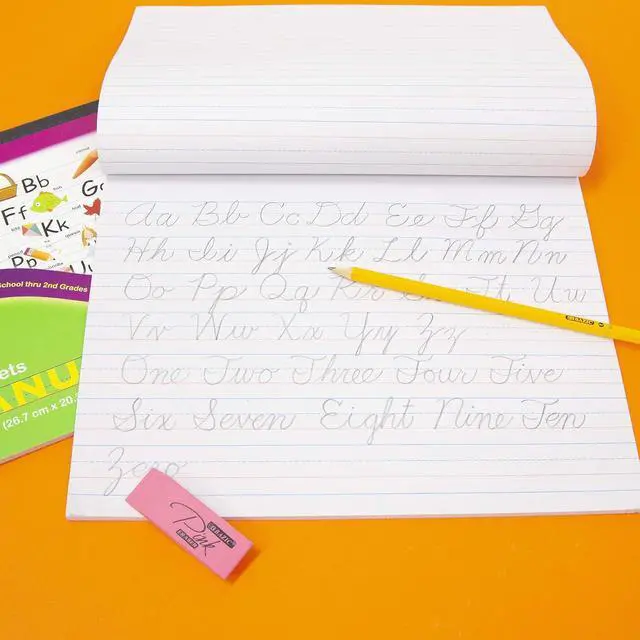 Aa Bb Cc Dd Ee Ff Gg
Hh Ii Jj Kk Ll Mm Nn
Oo Pp Qq Rr Ss Tt Uu
Vv Ww Xx Yy Zz
One Two Three Four Five
Six Seven Eight Nine Ten
Zero
Bb
Ff
Kk
Pp
School thru 2nd Grades
(26.7 cm x 20.
BAZIC
Pink
ERASER
BAZIC